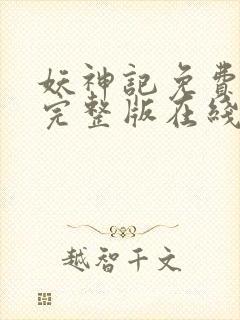 妖神記免費
完整版在綫
越智千文